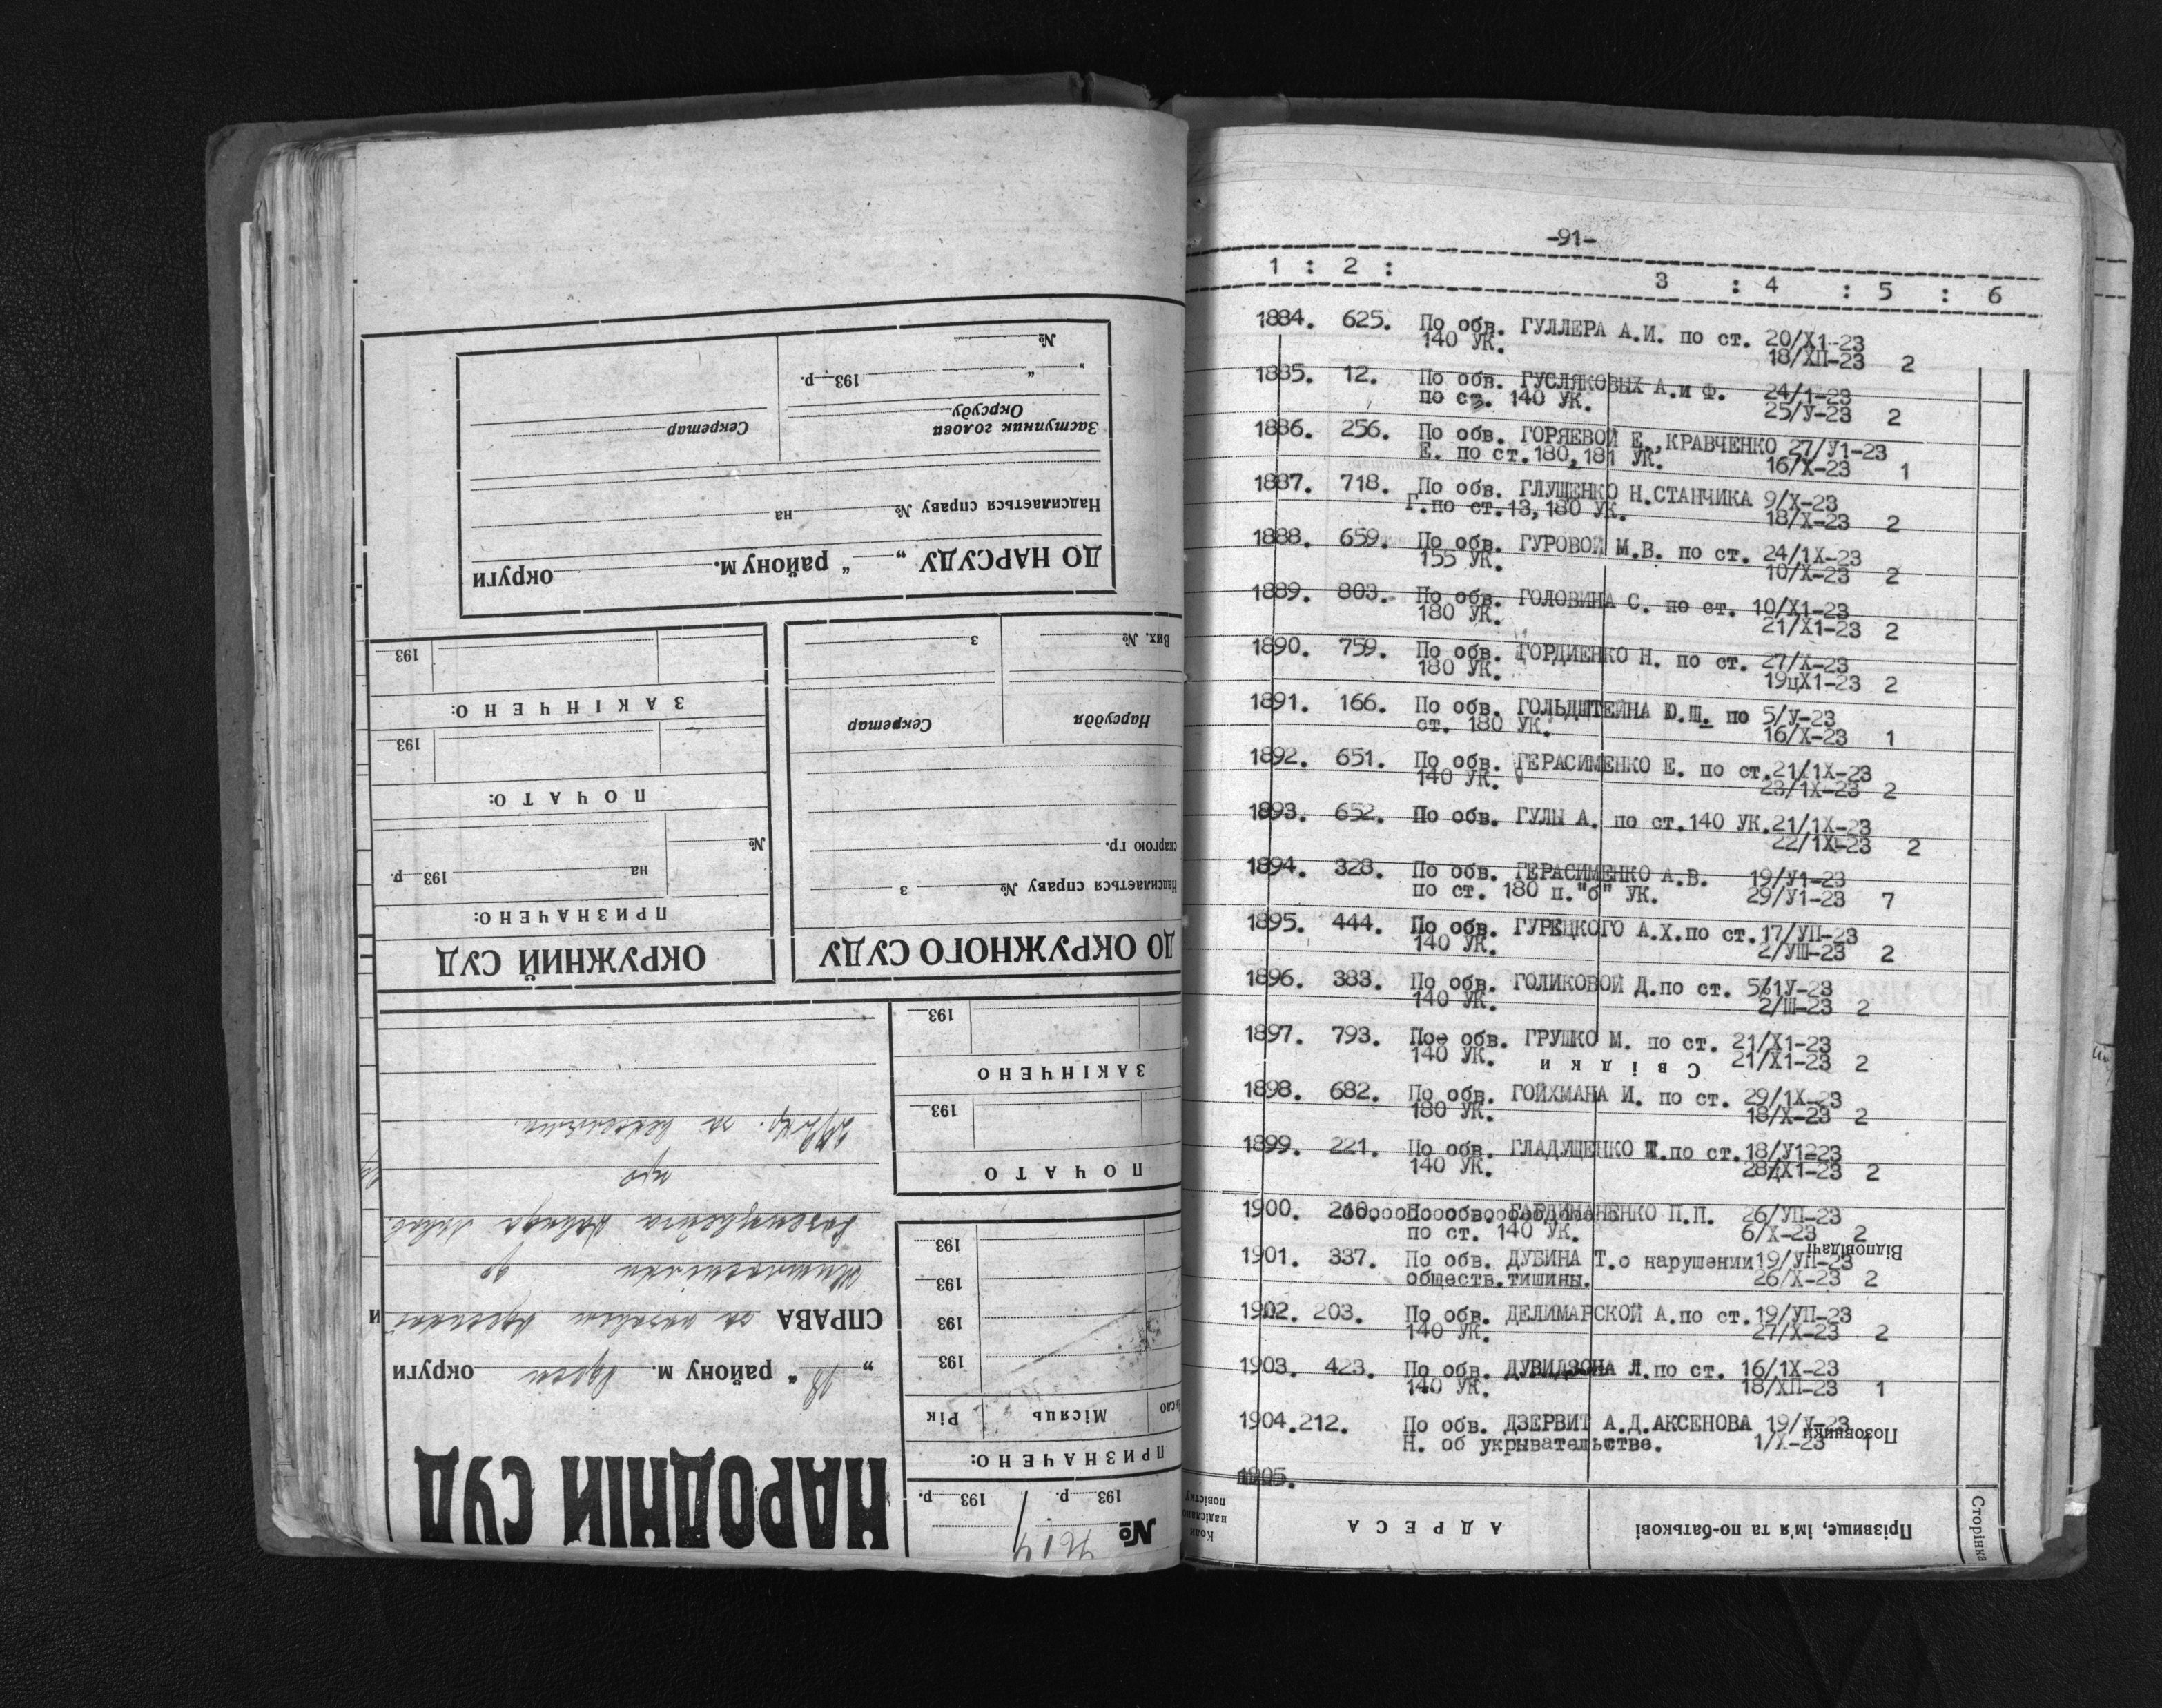 №
193 р.
"
"
Окрсуду
Заступник голови
Секретар
Надсилається справу №
на
ДО НАРСУДУ „ “ району м. округи
Вих. №
з
193
ЗАКІНЧЕНО:
Нарсуддя
Секретар
193
ПОЧАТО:
№
скаргою гр.
на 193 р.
Надсилається справу № з
ПРИЗНАЧЕНО:
ДО ОКРУЖНОГО СУДУ
ОКРУЖНИЙ СУД
193
ЗАКІНЧЕНО
193
ПОЧАТО
193
193
193
193
СПРАВА
и
„18“ району м. округи
Число Місяць Рік
ПРИЗНАЧЕНО:
НАРОДНІЙ СУД
193 р. 193 р.
№
-91-
1 : 2 : 3 : 4 : 5 : 6
1884. 625. По обв. ГУЛЛЕРА А.И. по ст. 20/Х1-23
140 УК. 18/ХП-23 2
1885. 12. По обв. ГУСЛЯКОВЫХ А.и Ф. 24/1-23
по ст. 140 УК. 25/У-23 2
1886. 256. По обв. ГОРЯЕВОЙ Е.,КРАВЧЕНКО 27/У1-23
Е. по ст.180,181 УК. 16/Х-23 1
1887. 718. По обв. ГЛУЩЕНКО Н.СТАНЧИКА 9/Х-23
Г.по ст.13,180 УК. 18/Х-23 2
1888. 659. По обв. ГУРОВОЙ М.В. по ст. 24/1Х-23
155 УК. 10/Х-23 2
1889. 803. По обв. ГОЛОВИНА С. по ст. 10/Х1-23
180 УК. 21/Х1-23 2
1890. 759. По обв. ГОРДИЕНКО Н. по ст. 27/Х-23
180 УК. 19цХ1-23 2
1891. 166. По обв. ГОЛЬДШТЕЙНА Ю.Ш. по 5/У-23
ст. 180 УК. 16/Х-23 1
1892. 651. По обв. ГЕРАСИМЕНКО Е. по ст.21/1Х-23
140 УК. 23/1Х-23 2
1893. 652. По обв. ГУЛЫ А. по ст.140 УК.21/1Х-23
22/1Х-23 2
1894. 328. По обв. ГЕРАСИМЕНКО А.В. 19/У1-23
по ст. 180 п."б" УК. 29/У1-23 7
1895. 444. По обв. ГУРЕЦКОГО А.Х.по ст.17/УП-23
140 УК. 2/УШ-23 2
1896. 383. По обв. ГОЛИКОВОЙ Д.по ст. 5/1У-23
140 УК. 2/Ш-23 2
1897. 793. Пое обв. ГРУШКО М. по ст. 21/Х1-23
140 УК. 21/Х1-23 2
Свідки
1898. 682. По обв. ГОЙХМАНА И. по ст. 29/1Х-23
180 УК. 18/Х-23 2
1899. 221. По обв. ГЛАДУЩЕНКО по ст.18/У1-23
140 УК. 2
1900. 210. По обв. ГАРДИМАНЕНКО П.П. 26/УП-23
по ст. 140 УК. 6/Х-23 2
Відповідачі
1901. 337. По обв. ДУБИНА Т.о нарушении19/УП-23
обществ.тишины. 26/Х-23 2
1902. 203. По обв. ДЕЛИМАРСКОЙ А.по ст.19/УП-23
140 УК. 27/Х-23 2
1903. 423. По обв. ДУВИДЗОНА Л.по ст. 16/1Х-23
140 УК. 18/ХП-23 1
1904.212. По обв. ДЗЕРВИТ А.Д.АКСЕНОВА 19/У-23
Н. об укрывательстве. 1/Х-23 1
Позовники
1905.
Коли надіслано повістку
АДРЕСА
Прізвище, ім'я та по-батькові
Сторінка